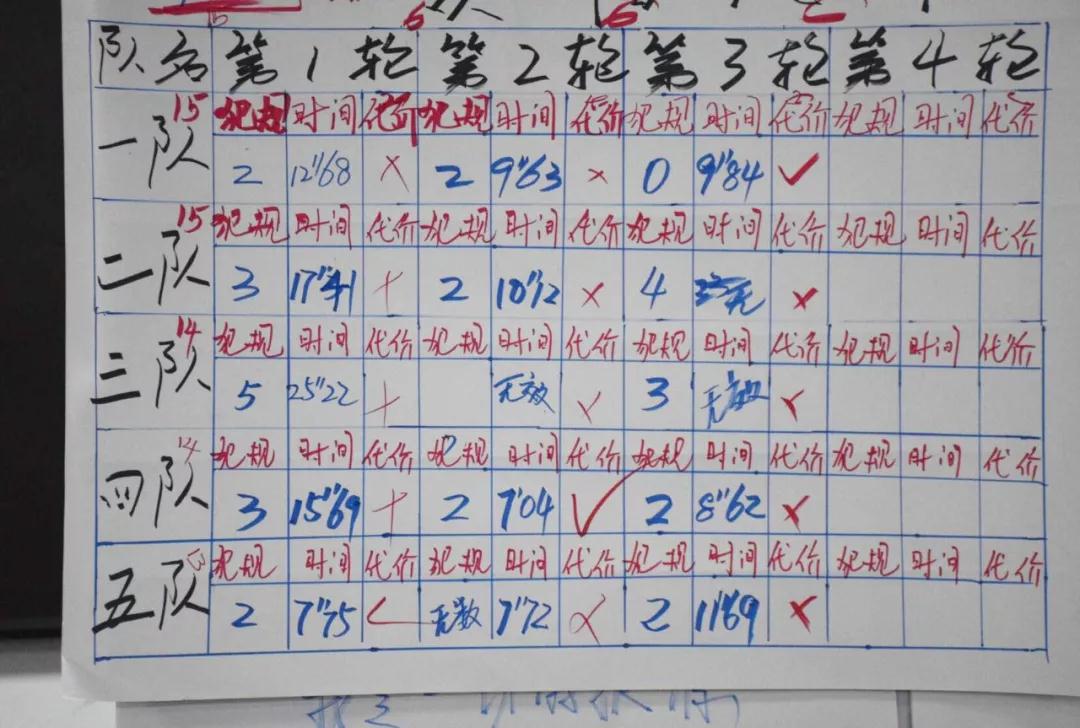 队名 第1轮 第2轮 第3轮 第4轮
一队 15 犯规 时间 代价 犯规 时间 代价 犯规 时间 代价 犯规 时间 代价
2 12"68 × 2 9"63 × 0 9"84 ✓
二队 15 犯规 时间 代价 犯规 时间 代价 犯规 时间 代价 犯规 时间 代价
3 17"41 × 2 10"12 × 4 × 
三队 14 犯规 时间 代价 犯规 时间 代价 犯规 时间 代价 犯规 时间 代价
5 25"22 × 无效 × 3 无效 ×
四队 14 犯规 时间 代价 犯规 时间 代价 犯规 时间 代价 犯规 时间 代价
3 15"69 × 2 7"04 ✓ 2 8"62 ×
五队 犯规 时间 代价 犯规 时间 代价 犯规 时间 代价 犯规 时间 代价
2 7"75 ✓ 无数 7"72 × 2 11"69 ×